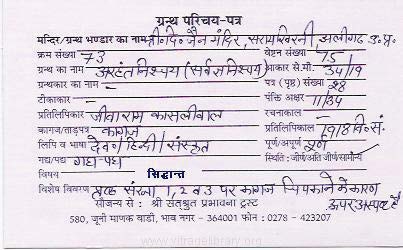 ग्रन्थ परिचय-पत्र
मन्दिर/ग्रन्थ भण्डार का नाम श्री दि० जैन मंदिर, सरायखिरनी, अलीगढ़ उ.प्र.
क्रम संख्या 73 वेष्टन संख्या 75
ग्रन्थ का नाम अरहंतनिश्चय (सर्वज्ञनिश्चय) आकार से.मी. 34/19
ग्रन्थकार का नाम - पत्र (पृष्ठ) संख्या 28
टीकाकार - पंक्ति अक्षर 11/34
प्रतिलिपिकार जीवाराम कासलीवाल रचनाकाल -
कागज/ताड़पत्र कागज प्रतिलिपिकाल 1918 वि.सं.
लिपि व भाषा देव०/हिन्दी/संस्कृत पूर्ण/अपूर्ण पूर्ण
गद्य/पद्य गद्य-पद्य स्थिति: जीर्ण/अति जीर्ण/सामान्य
विषय सिद्धान्त
विशेष विवरण पृष्ठ संख्या 1, 2 व 3 पर कागज चिपकाने के कारण
अक्षर अस्पष्ट है
सौजन्य से : श्री सत्श्रुत प्रभावना ट्रस्ट
580, जूनी माणक वाडी, भाव नगर - 364001 फोन : 0278 - 423207
www.vitragelibrary.org